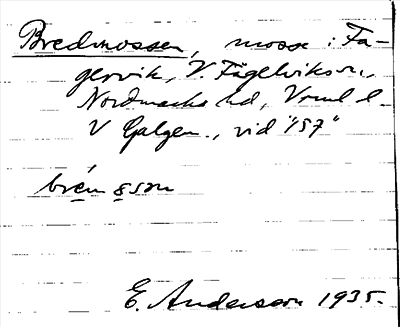 Bredmossen, mosse i Fa-
gervik, V. Fågelvikson,
Nordmarks hd, Vrml l.
V Galgen., vid "157"
E. Anderson 1935.